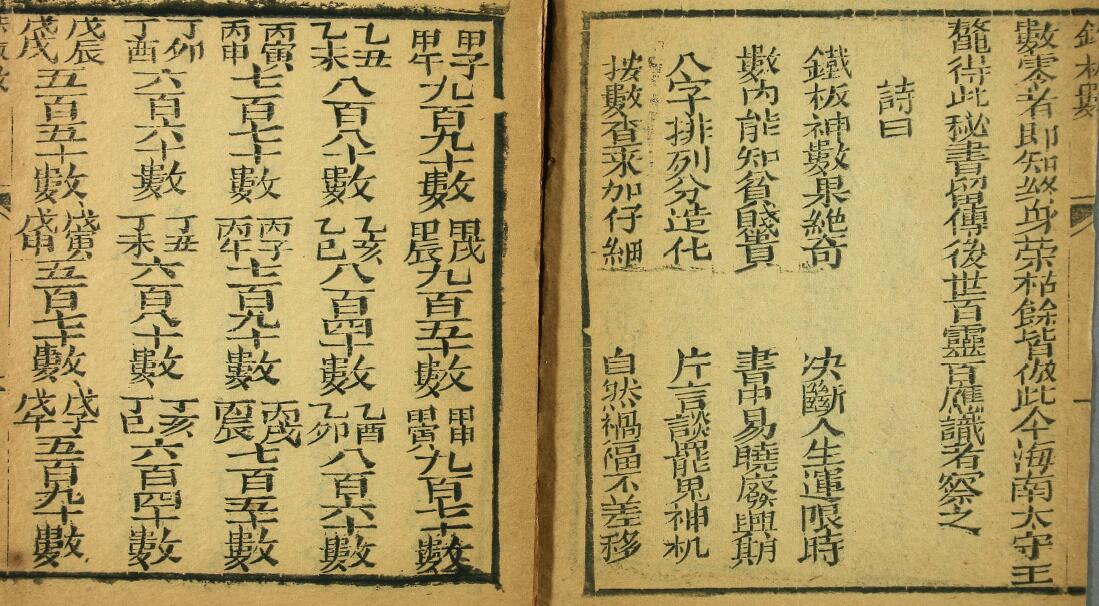 數零者即知終身荣枯餘皆倣此今海南太守王
鰲得此秘書畱傳後世百靈百應識者察之
詩曰
鐵板神數果絶奇　决斷人生運限時
數内能知貧賤貴　書中易曉廢興期
八字排列分造化　片言談罷鬼神机
按數查來加仔細　自然禍福不差移
甲子甲午九百九十數　甲戌甲辰九百五十數　甲申甲寅九百七十數
乙丑乙未八百八十數　乙亥乙巳八百四十數　乙酉乙卯八百六十數
丙寅丙申七百七十數　丙子丙午七百九十數　丙戌丙辰七百五十數
丁卯丁酉六百六十數　丁丑丁未六百八十數　丁亥丁巳六百四十數
戊辰戊戌五百五十數　戊寅戊申五百七十數　戊子戊午五百九十數